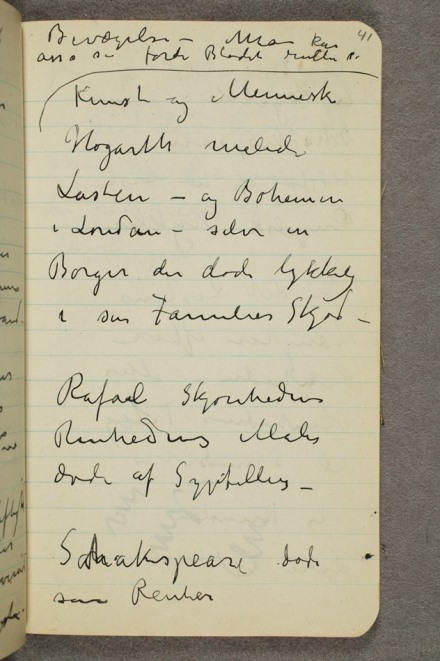 41
Bevægelse – Man kan
altså se fordi Bladet
Kunst og Mennesk
Hogarth malede
Lasten – og Bohemen
i London – selv en
Borger der døde lykkelig
i sin Families Skjød –
Rafael Skjønhedens
Renhedens Maler
døde af Syphilles –
Schakespeare døde
som Rentier